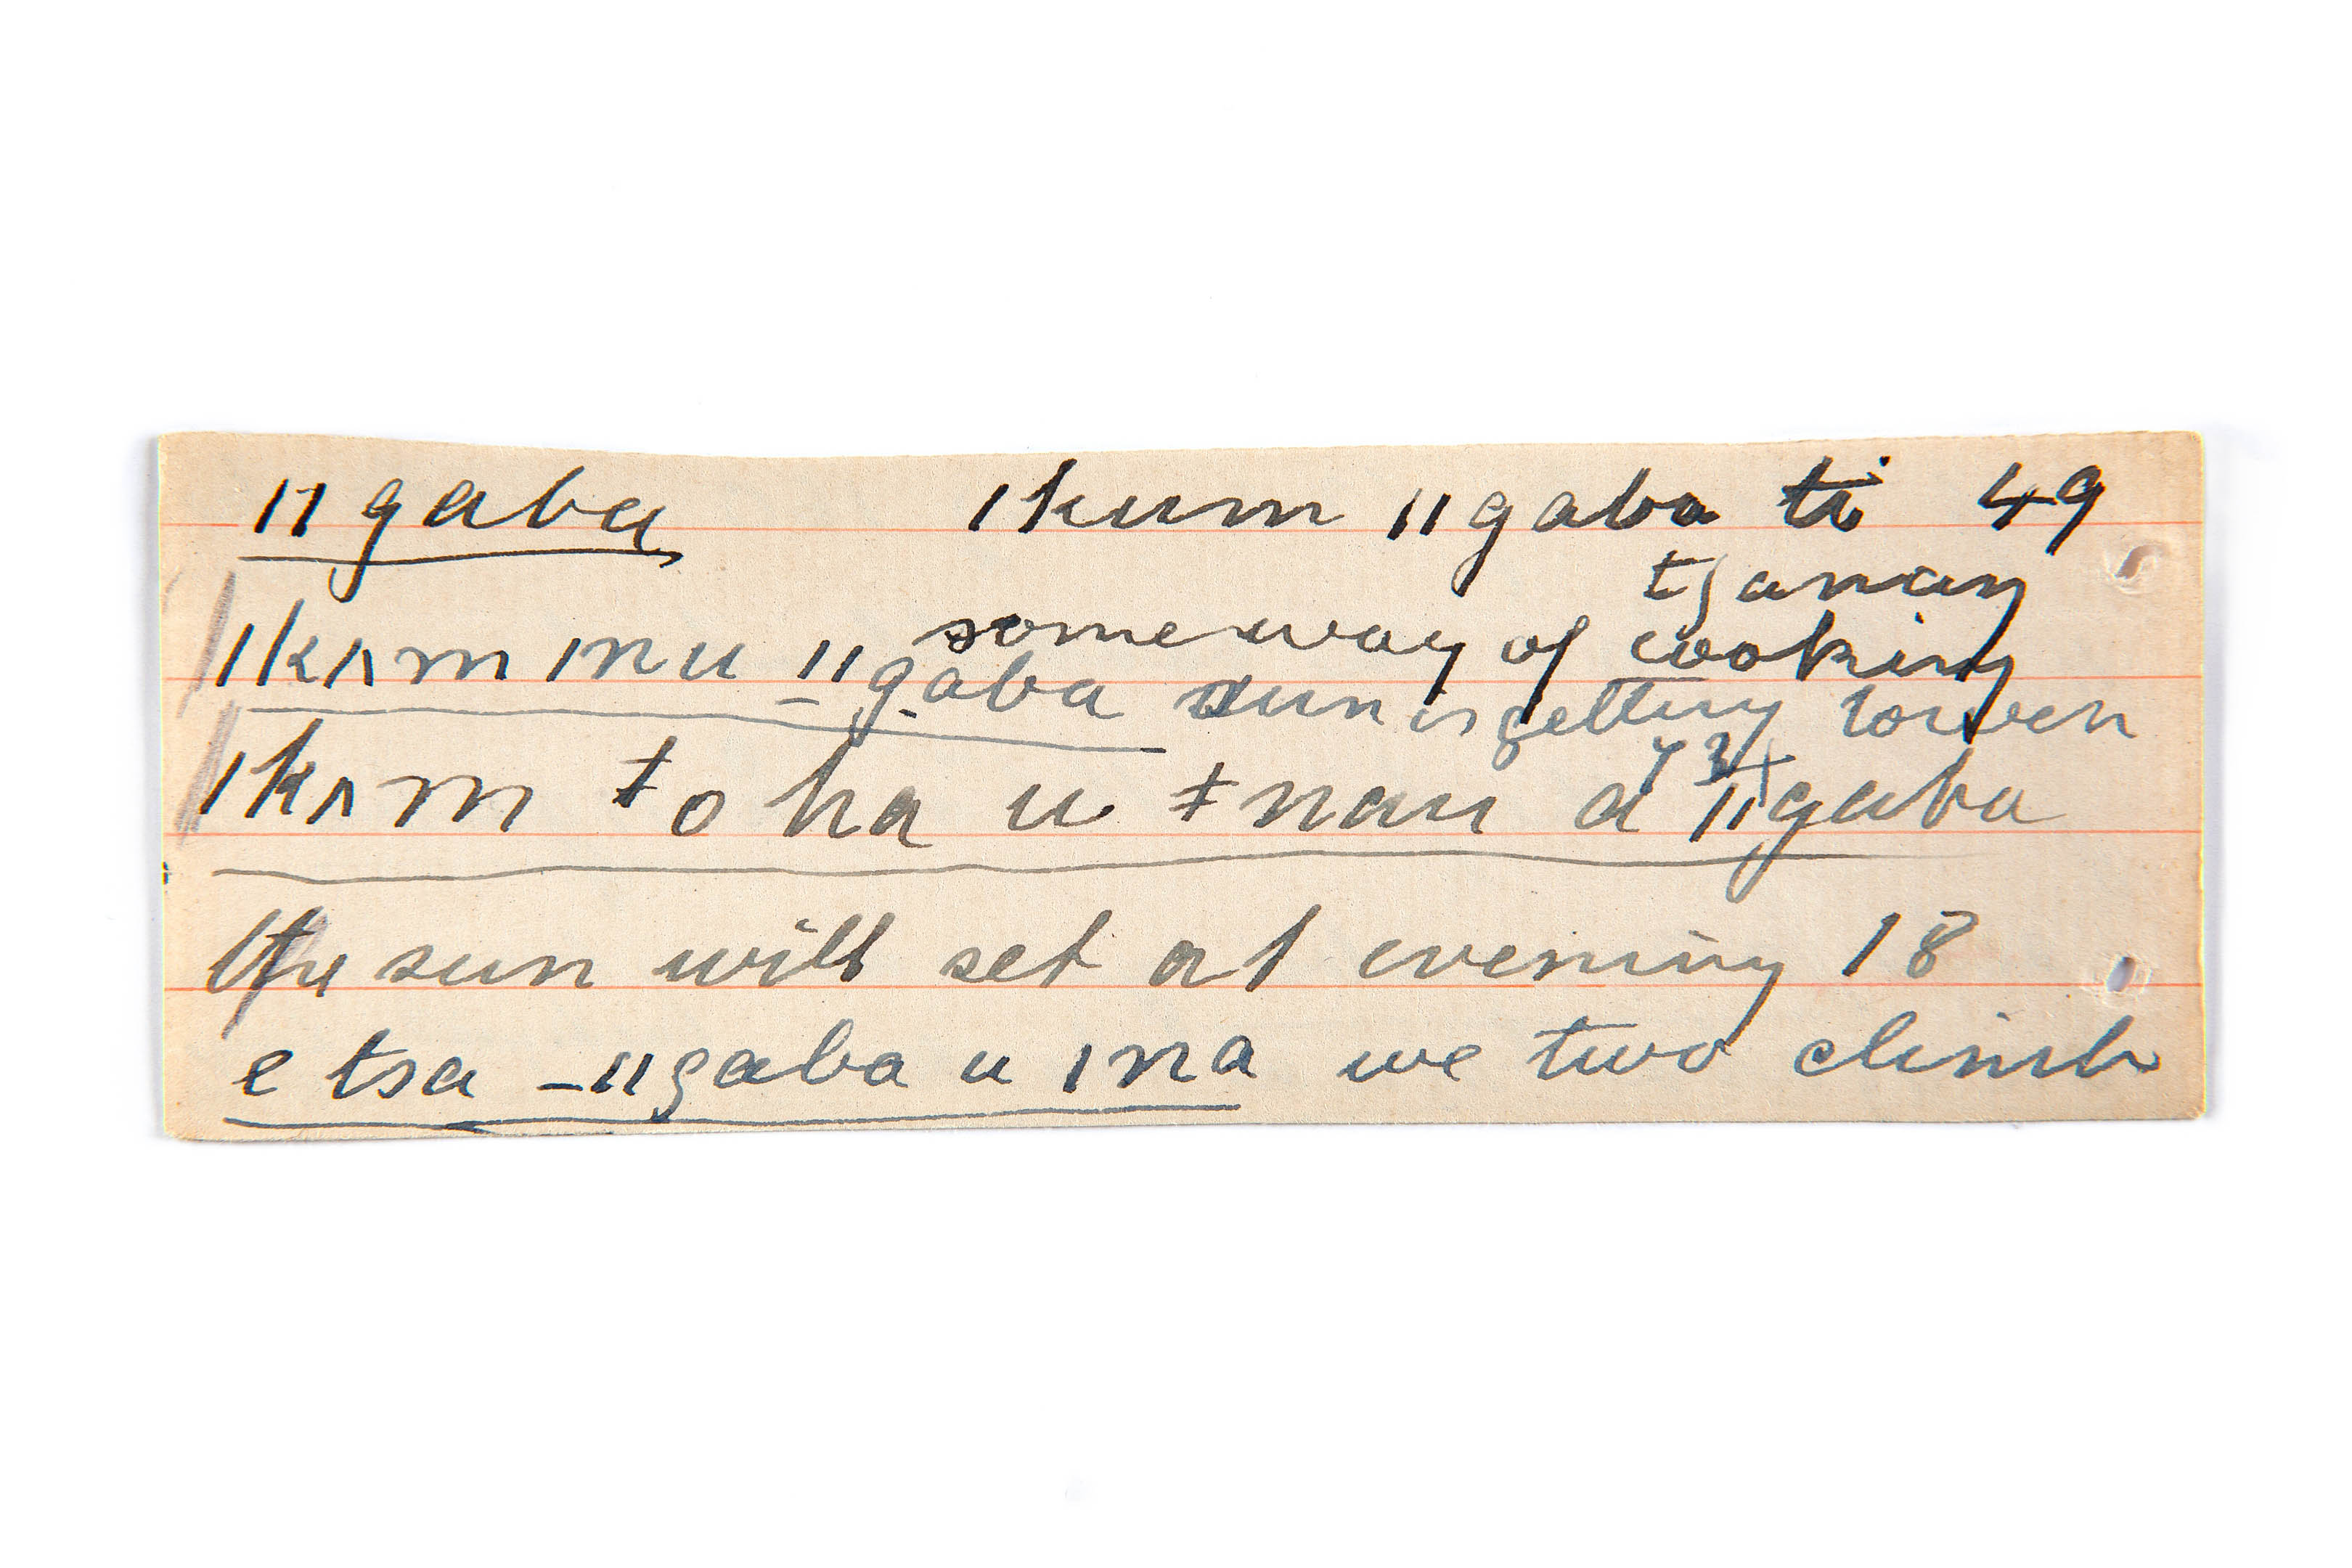 ǁgaba ǀkum ǁgaba ti 49
tʃanaŋ
some way of cooking
ǀkʌm ǀnu ǁgaba sun is getting lower
ǀkʌm ǂo ha u ǂnau a ǁgaba
the sun will set at evening 18
e tsa _ǁgaba u ǀna we two climb